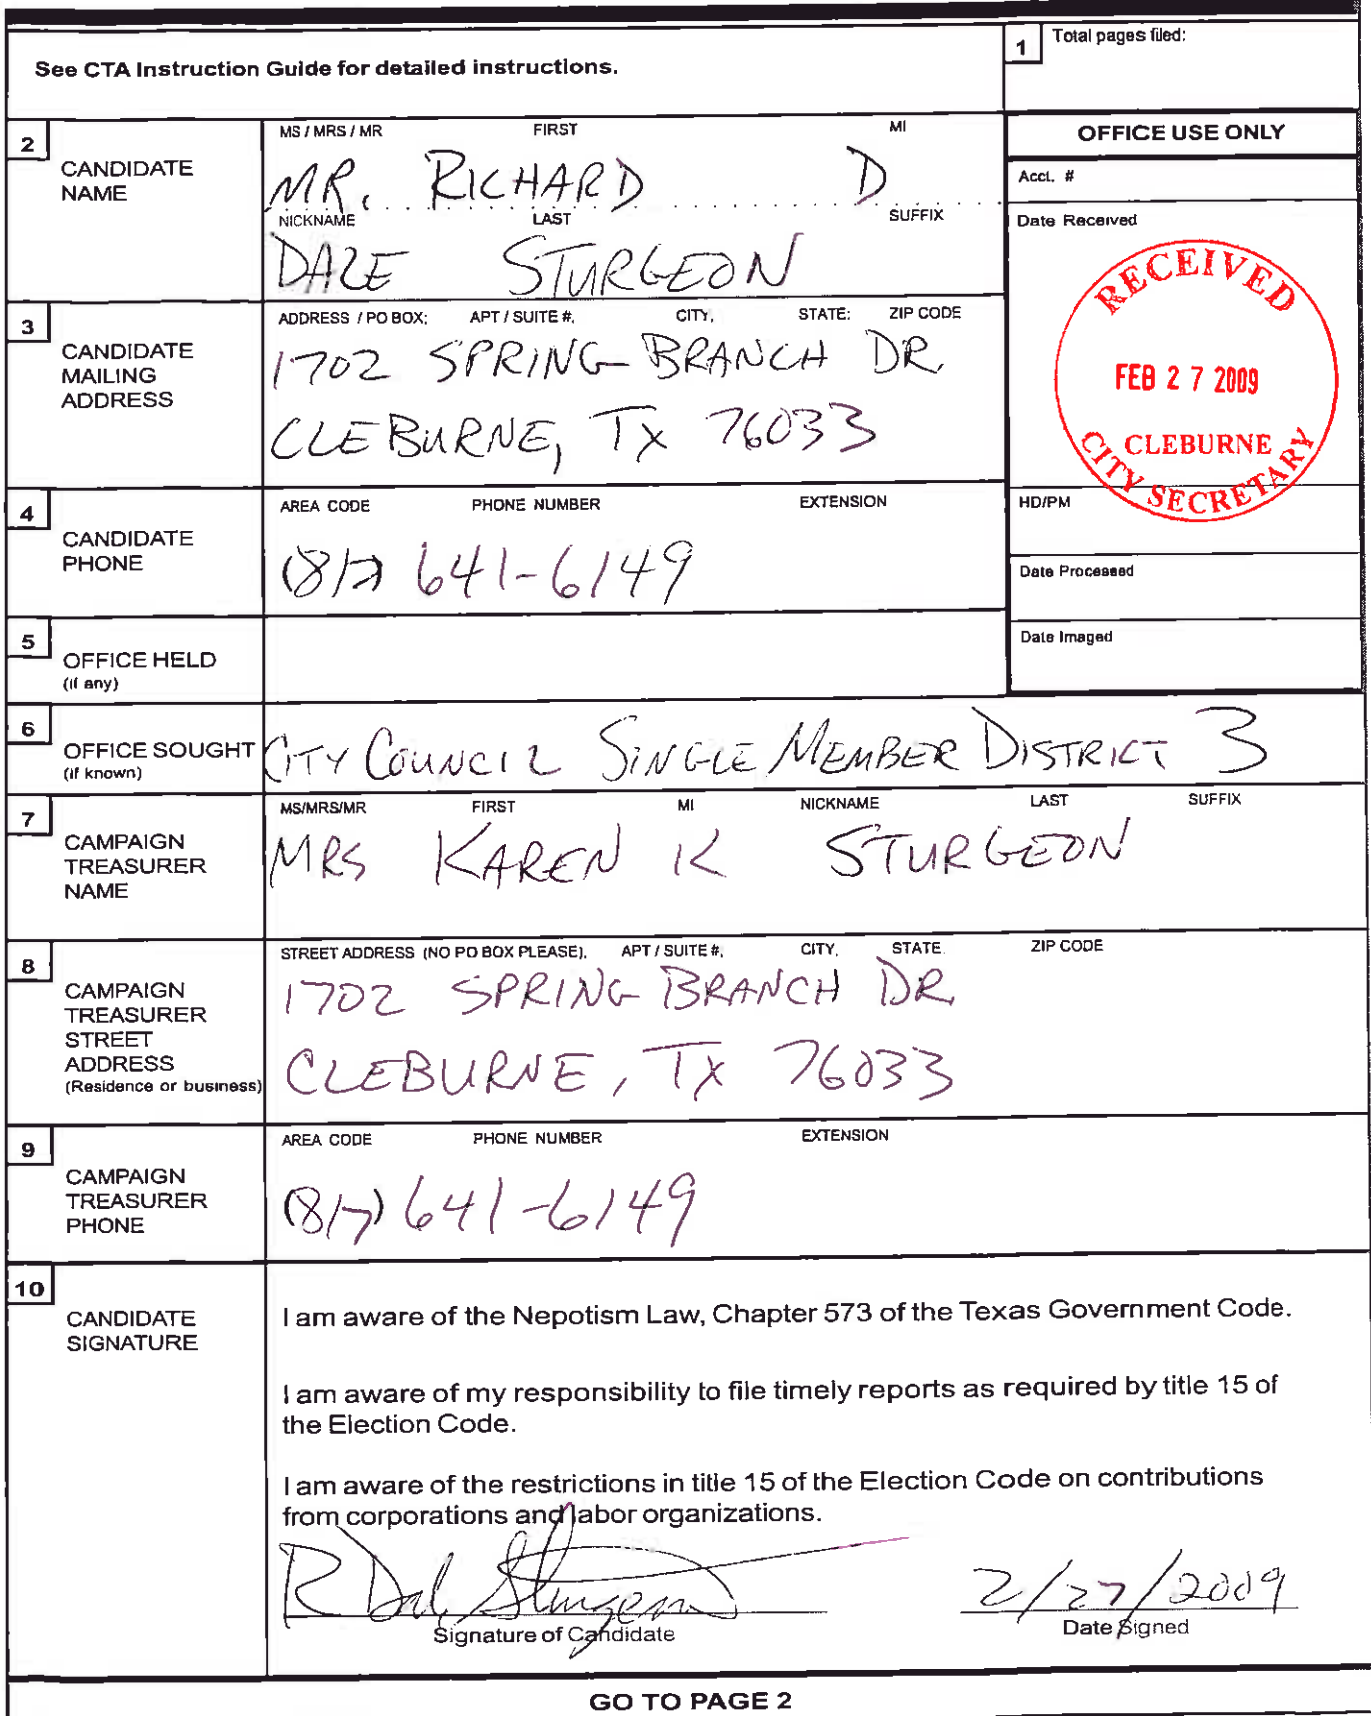 See CTA Instruction Guide for detailed instructions.
1 Total pages filed:
2 CANDIDATE NAME
MS / MRS / MR FIRST MI
MR. RICHARD D
NICKNAME LAST SUFFIX
DALE STURGEON
OFFICE USE ONLY
Acct. #
Date Received
RECEIVED
FEB 27 2009
CLEBURNE
CITY SECRETARY
HD/PM
Date Processed
Date Imaged
3 CANDIDATE MAILING ADDRESS
ADDRESS / PO BOX; APT / SUITE #, CITY, STATE; ZIP CODE
1702 SPRING BRANCH DR.
CLEBURNE, TX 76033
4 CANDIDATE PHONE
AREA CODE PHONE NUMBER EXTENSION
(817) 641-6149
5 OFFICE HELD
(if any)
6 OFFICE SOUGHT
(if known)
CITY COUNCIL SINGLE MEMBER DISTRICT 3
7 CAMPAIGN TREASURER NAME
MS/MRS/MR FIRST MI NICKNAME LAST SUFFIX
MRS KAREN K STURGEON
8 CAMPAIGN TREASURER STREET ADDRESS
(Residence or business)
STREET ADDRESS (NO PO BOX PLEASE), APT / SUITE #, CITY, STATE. ZIP CODE
1702 SPRING BRANCH DR.
CLEBURNE, TX 76033
9 CAMPAIGN TREASURER PHONE
AREA CODE PHONE NUMBER EXTENSION
(817) 641-6149
10 CANDIDATE SIGNATURE
I am aware of the Nepotism Law, Chapter 573 of the Texas Government Code.
I am aware of my responsibility to file timely reports as required by title 15 of
the Election Code.
I am aware of the restrictions in title 15 of the Election Code on contributions
from corporations and labor organizations.
R Dale Sturgeon 2/27/2009
Signature of Candidate Date Signed
GO TO PAGE 2